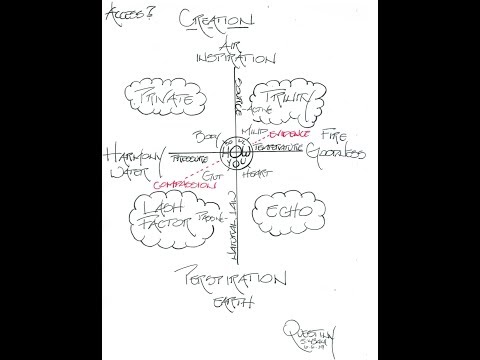 Access?
Creation
Air
Inspiration
Private
Trinity
Source
Active
Body
Mind
Evidence
Fire
Harmony
Water
Pressure
How
You
Temperature
Goodness
Compassion
Gut
Heart
Lash
Factor
Passive
Echo
Natural
Perspiration
Earth